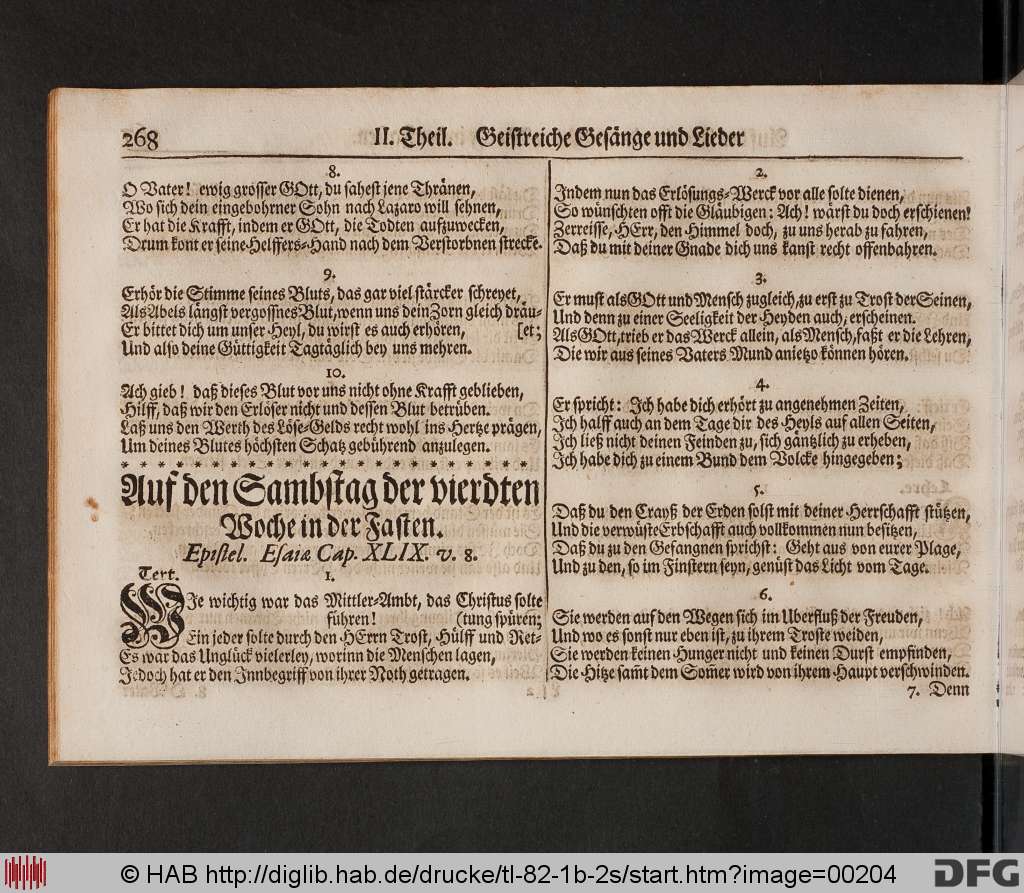 268
II. Theil. Geistreiche Gesänge und Lieder
8.
O Vater! ewig grosser GOtt, du sahest jene Thränen,
Wo sich dein eingebohrner Sohn nach Lazaro will sehnen,
Er hat die Krafft, indem er GOtt, die Todten aufzuwecken,
Drum kont er seine Helffers-Hand nach dem Verstorbnen strecke.
9.
Erhör die Stimme seines Bluts, das gar viel stärcker schreyet,
Als Abels längst vergossnes Blut, wenn uns dein Zorn gleich dräu-
Er bittet dich um unser Heyl, du wirst es auch erhören, [et;
Und also deine Güttigkeit Tagtäglich bey uns mehren.
10.
Ach gieb! daß dieses Blut vor uns nicht ohne Krafft geblieben,
Hilff, daß wir den Erlöser nicht und dessen Blut betrüben.
Laß uns den Werth des Löse-Gelds recht wohl ins Hertze prägen,
Um deines Blutes höchsten Schatz gebührend anzulegen.
* * * * * * * * * * * * * * * * * * * * * * *
Auf den Sambstag der vierdten
Woche in der Fasten.
Epistel. Esaiæ Cap. XLIX. v. 8.
Text. 1.
WJe wichtig war das Mittler-Ambt, das Christus solte
führen! (tung spüren;
Ein jeder solte durch den HErrn Trost, Hülff und Ret-
Es war das Unglück vielerley, worinn die Menschen lagen,
Jedoch hat er den Innbegriff von ihrer Noth getragen.
2.
Indem nun das Erlösungs-Werck vor alle solte dienen,
So wünschten offt die Gläubigen: Ach! wärst du doch erschienen!
Zerreisse, HErr, den Himmel doch, zu uns herab zu fahren,
Daß du mit deiner Gnade dich uns kanst recht offenbahren.
3.
Er must als GOtt und Mensch zugleich, zu erst zu Trost der Seinen,
Und denn zu einer Seeligkeit der Heyden auch, erscheinen.
Als GOtt, trieb er das Werck allein, als Mensch, faßt er die Lehren,
Die wir aus seines Vaters Mund anietzo können hören.
4.
Er spricht: Ich habe dich erhört zu angenehmen Zeiten,
Ich halff auch an dem Tage dir des Heyls auf allen Seiten,
Ich ließ nicht deinen Feinden zu, sich gäntzlich zu erheben,
Ich habe dich zu einem Bund dem Volcke hingegeben;
5.
Daß du den Crayß der Erden solst mit deiner Herrschafft stützen,
Und die verwüste Erbschafft auch vollkommen nun besitzen,
Daß du zu den Gefangnen sprichst: Geht aus von eurer Plage,
Und zu den, so im Finstern seyn, genüst das Licht vom Tage.
6.
Sie werden auf den Wegen sich im Uberfluß der Freuden,
Und wo es sonst nur eben ist, zu ihrem Troste weiden,
Sie werden keinen Hunger nicht und keinen Durst empfinden,
Die Hitze sam̃t dem Som̃er wird von ihrem Haupt verschwinden.
7. Denn
© HAB http://diglib.hab.de/drucke/tl-82-1b-2s/start.htm?image=00204
DFG